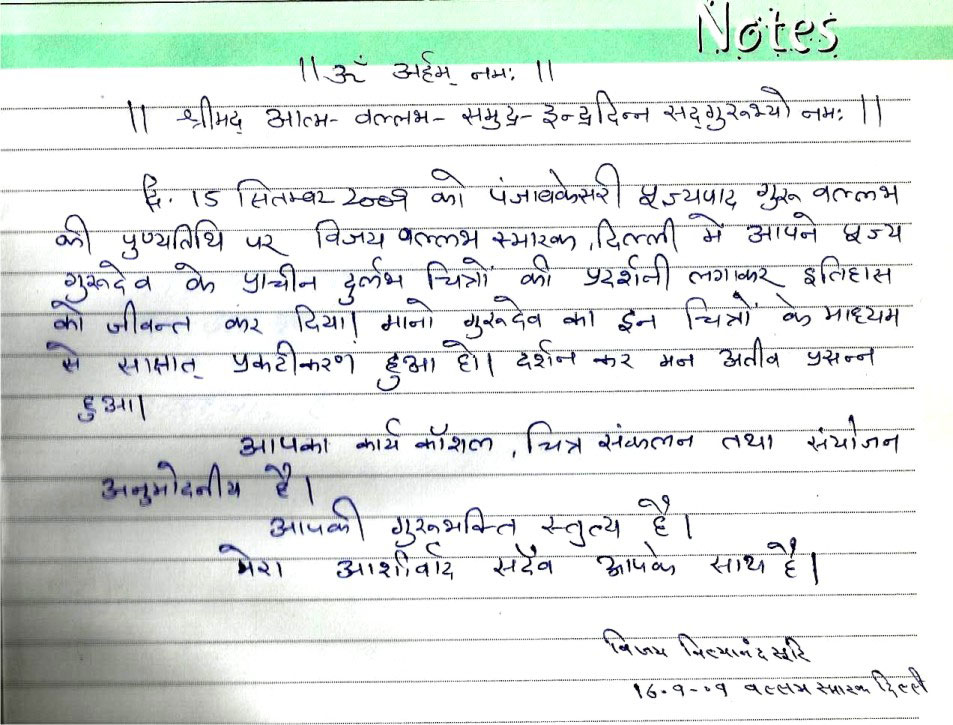 Notes
॥ ॐ अर्हम् नमः ॥
॥ श्रीमद् आत्म-वल्लभ-समुद्र-इन्द्रदिन्न सद्गुरूभ्यो नमः ॥
दि. 15 सितम्बर 2009 को पंजाबकेसरी पूज्यपाद गुरू वल्लभ
की पुण्यतिथि पर विजय वल्लभ स्मारक, दिल्ली में आपने पूज्य
गुरूदेव के प्राचीन दुर्लभ चित्रों की प्रदर्शनी लगाकर इतिहास
को जीवन्त कर दिया। मानो गुरूदेव का इन चित्रों के माध्यम
से साक्षात् प्रकटीकरण हुआ हो। दर्शन कर मन अतीव प्रसन्न
हुआ।
आपका कार्य कौशल, चित्र संकलन तथा संयोजन
अनुमोदनीय है।
आपकी गुरूभक्ति स्तुत्य है।
मेरा आशीर्वाद सदैव आपके साथ है।
विजय नित्यानंद सूरि
16-9-09 वल्लभ स्मारक दिल्ली